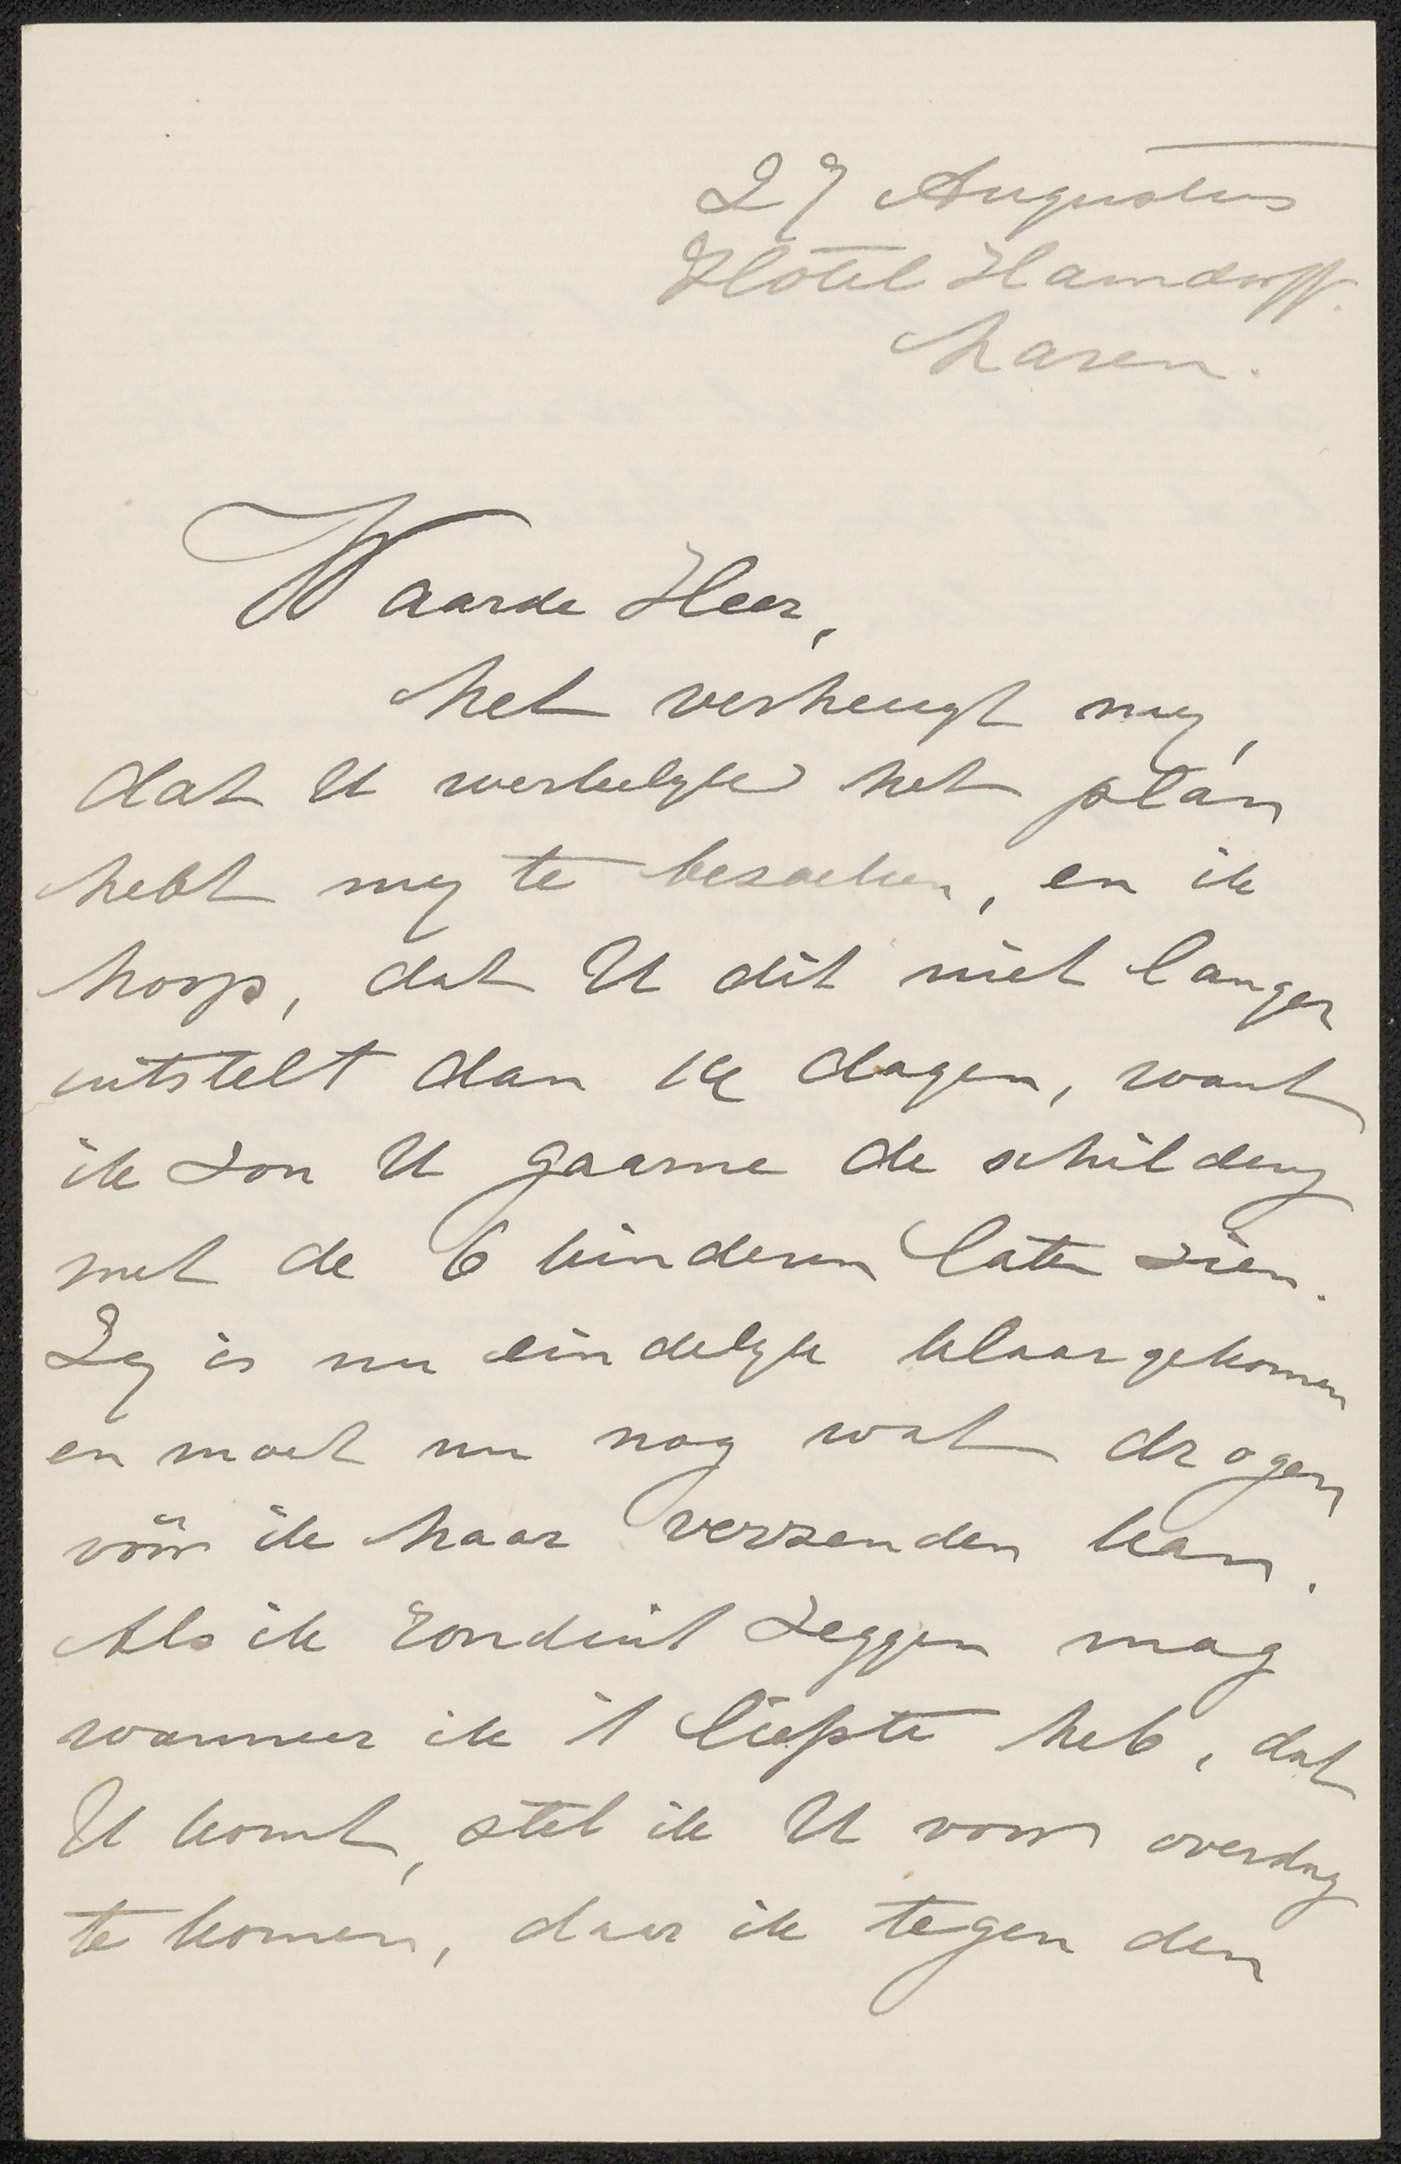 27 Augustus
Hôtel Hamdorff.
Laren.
Waarde Heer,
het verheugt my,
dat U werkelyk het plan
hebt my te bezoeken, en ik
hoop, dat U dit niet langer
uitstelt dan 14 dagen, want
ik zou U gaarne de schildery
met de 6 kinderen laten zien.
Zy is nu eindelyk klaargekomen
en moet nu nog wat drogen
vóór ik haar verzenden kan.
Als ik ronduit zeggen mag
wanneer ik 't liefste heb, dat
U komt, stel ik U voor overdag
te komen, daar ik tegen den